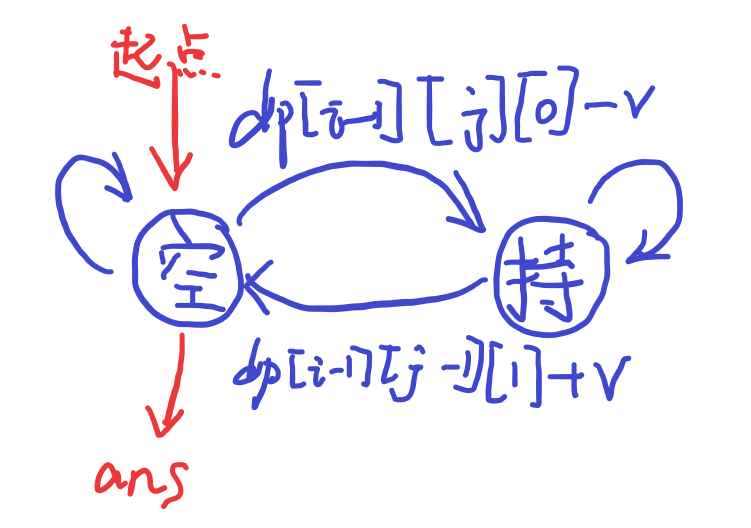 起点
dp[i-1][j][0]-v
空
持
dp[i-1][j-1][1]+v
ans